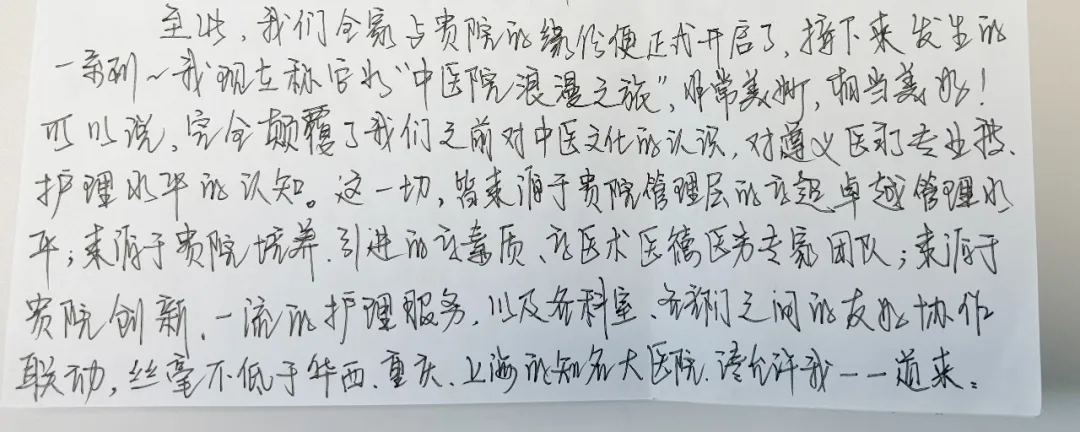 至此，我们全家与贵院的缘份便正式开启了，接下来发生的
一系列～我现在称它为“中医院浪漫之旅”，非常美妙，相当美好！
可以说，完全颠覆了我们之前对中医文化的认识，对遵义医疗专业技、
护理水平的认知。这一切，皆来源于贵院管理层的高超卓越管理水
平；来源于贵院培养、引进的高素质、高医术医德医务专家团队；来源于
贵院创新、一流的护理服务，以及各科室、各部门之间的友好协作
联动，丝毫不低于华西、重庆、上海的知名大医院，请允许我一一道来。